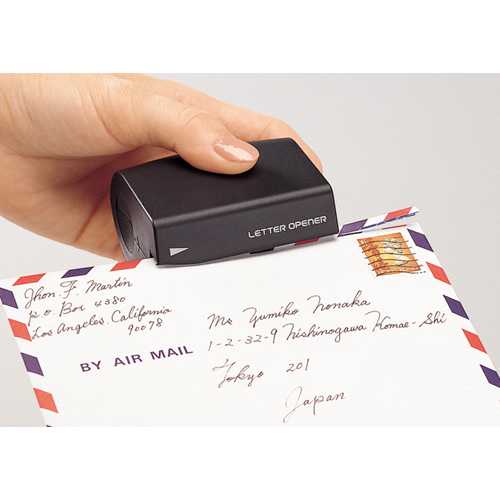 LETTER OPENER
Jhon. F. Martin
P.O. Box 4380
Los Angeles, California
90078
BY AIR MAIL
Ms Yumiko Nonaka
1-2-32-9 Nishinogawa Komae-Shi
Tokyo 201
Japan